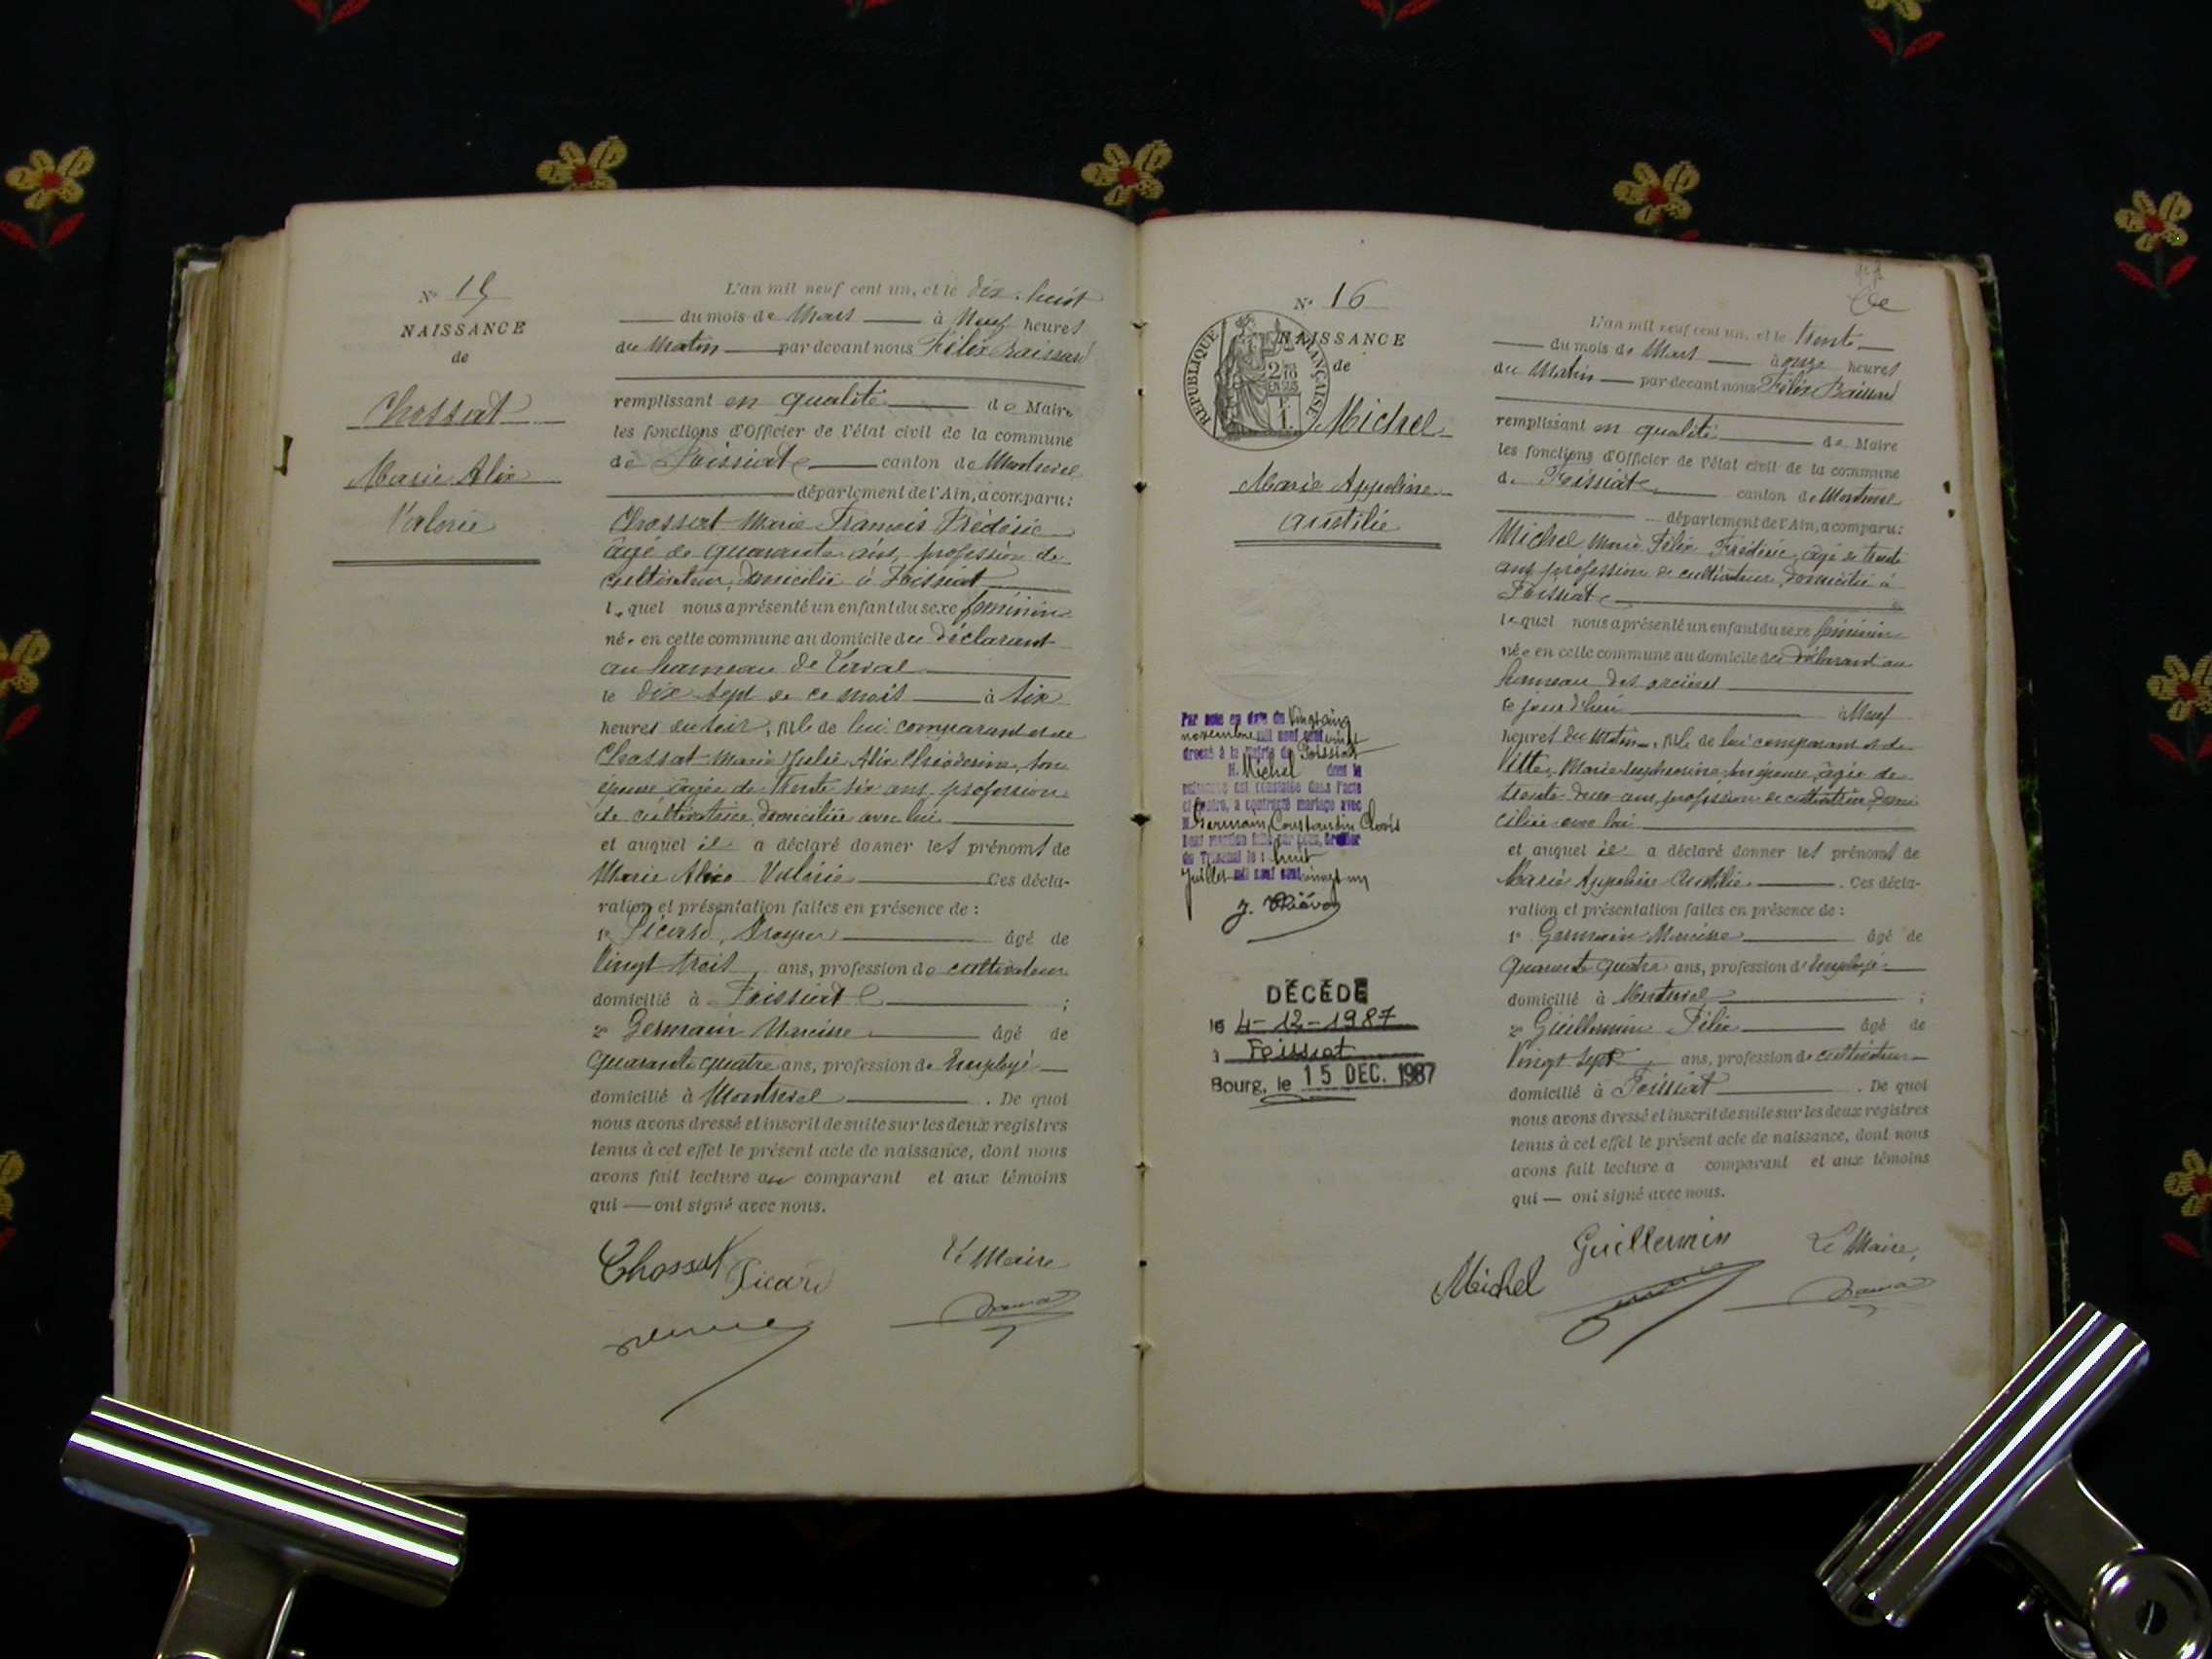 N° 15
NAISSANCE
de
Chossat
Marie Alix
Valérie
L'an mil neuf cent un, et le dix-huit
du mois de Mars à Neuf heures
du Matin par devant nous Félix
remplissant en qualité de Maire
les fonctions d'Officier de l'état civil de la commune
de Foissiat canton de Montrevel
département de l'Ain, a comparu :
Chossat Marie François Frédéric
âgé de quarante ans, profession de
cultivateur, domicilié à Foissiat
lequel nous a présenté un enfant du sexe féminin
née en cette commune au domicile du déclarant
au hameau de
le dix sept de ce mois à six
heures du soir, fille de lui comparant et de
Chossat Marie Julie Alix son
épouse âgée de trente six ans profession
de cultivatrice domiciliée avec lui
et auquel il a déclaré donner les prénoms de
Marie Alix Valérie Ces décla-
ration et présentation faites en présence de :
1° Picard, Prosper âgé de
vingt trois ans, profession de cultivateur
domicilié à Foissiat ;
2° Germain Narcisse âgé de
quarante quatre ans, profession de Employé
domicilié à Montrevel . De quoi
nous avons dressé et inscrit de suite sur les deux registres
tenus à cet effet le présent acte de naissance, dont nous
avons fait lecture au comparant et aux témoins
qui — ont signé avec nous.
Chossat Picard Le Maire
N° 16
NAISSANCE
de
REPUBLIQUE FRANÇAISE
2/10 EN SUS
F. 1.
Michel
Marie Appoline
Austilie
Par acte en date du vingt cinq
novembre mil neuf cent vingt
dressé à la Mairie de Foissiat
M. Michel dont la
naissance est constatée dans l'acte
ci-contre, a contracté mariage avec
M. Germain, Constantin Clovis
Dont mention faite par nous, Greffier
du Tribunal le : huit
Juillet mil neuf cent vingt un
DÉCÉDÉ
le 4-12-1987
à Foissiat
Bourg, le 15 DEC. 1987
L'an mil neuf cent un, et le trente
du mois de Mars à onze heures
du Matin par devant nous Félix
remplissant en qualité de Maire
les fonctions d'Officier de l'état civil de la commune
de Foissiat canton de Montrevel
département de l'Ain, a comparu :
Michel Marie Félix Frédéric, âgé de trente
ans profession de cultivateur, domicilié à
Foissiat
lequel nous a présenté un enfant du sexe féminin
née en cette commune au domicile du déclarant au
hameau des
ce jourd'hui à Neuf
heures du Matin, fille de lui comparant et de
Vitte, Marie son épouse, âgée de
trente deux ans, profession de cultivatrice, domi
ciliée avec lui
et auquel il a déclaré donner les prénoms de
Marie Appoline Austilie . Ces décla-
ration et présentation faites en présence de :
1° Germain Narcisse âgé de
quarante quatre ans, profession d'Employé
domicilié à Montrevel ;
2° Guillermin Félix âgé de
vingt sept ans, profession de cultivateur
domicilié à Foissiat . De quoi
nous avons dressé et inscrit de suite sur les deux registres
tenus à cet effet le présent acte de naissance, dont nous
avons fait lecture a comparant et aux témoins
qui — ont signé avec nous.
Michel Guillermin Le Maire,